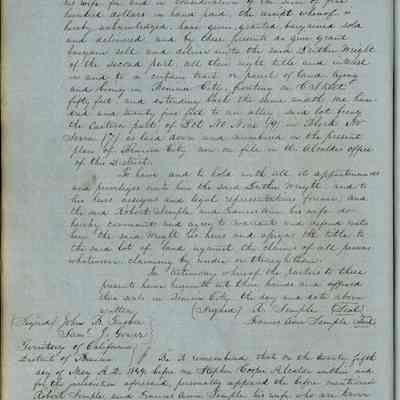 his wife for and in consideration of the sum of five
hundred dollars in hand paid, the receipt whereof is
hereby acknowledged, have given, granted, bargained, sold
and delivered and by these presents do give, grant
bargain sell and deliver unto the said Wright
of the second part, all their right title and interest
in and to a certain tract or parcel of land lying
and being in Benicia City, fronting on C Street
fifty feet, and extending back the same width one hun-
dred and twenty five feet to an alley, said lot being
the Eastern part of Lot No Nine (9) in Block No
Seven (7) as laid down and numbered in the present
plan of Benicia City now on file in the Alcaldes office
of this District.
To have and to hold with all its appurtenances
and privileges unto him the said Wright, and to
his heirs assigns and legal representatives forever, and
the said Robert Semple and Frances Ann his wife do
hereby covenant and agree to warrant and defend unto
him the said Wright his heirs and assigns the title to
the said lot of land against the claims of all persons
whatsoever claiming by under or through them.
In testimony whereof the parties to these
presents have hereunto set their hands and affixed
their seals in Benicia City the day and date above
written (Signed) R. Semple (Seal)
(Signed) John B. Frances Ann Semple (Seal)
Saml
Territory of California
District of Benicia Be it remembered that on the twenty fifth
day of May A.D. 1849 before me Stephen Cooper Alcalde within and
for the jurisdiction aforesaid, personally appeared the before mentioned
Robert Semple and Frances Anna Semple his wife who are known